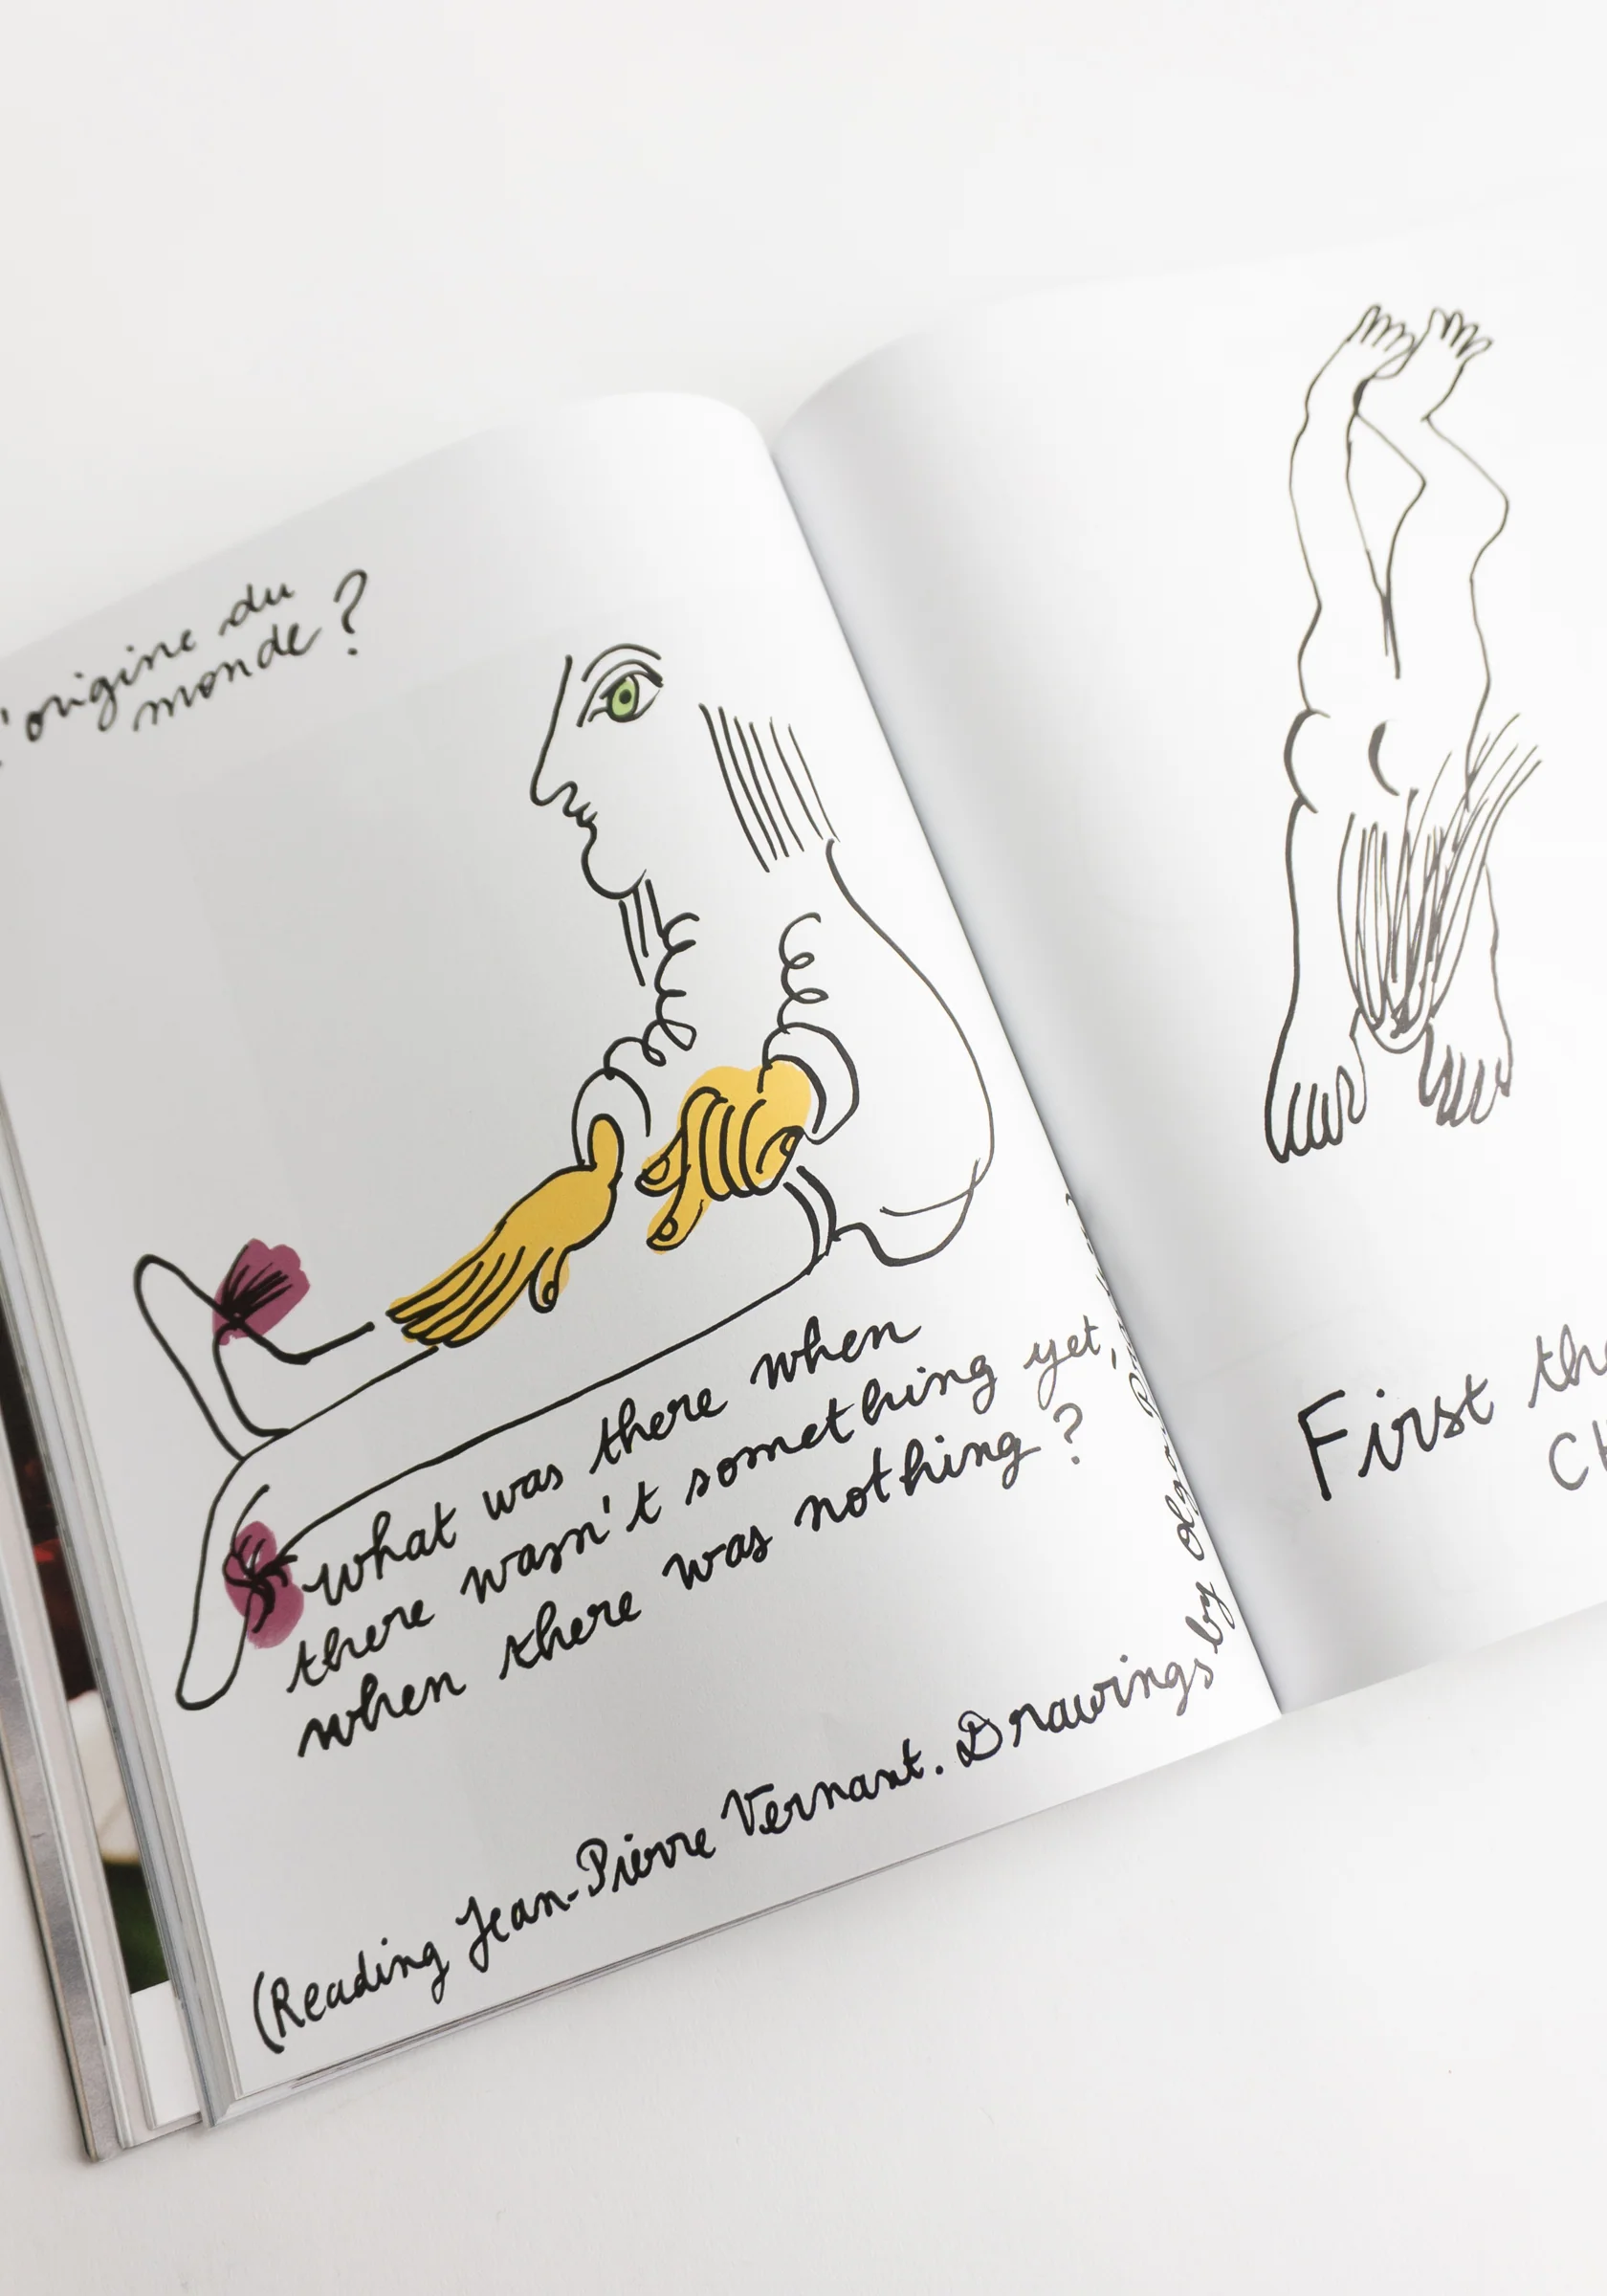 l'origine du
monde?
what was there when
there wasn't something yet,
when there was nothing?
(Reading Jean-Pierre Vernant. Drawings by Olga
First the